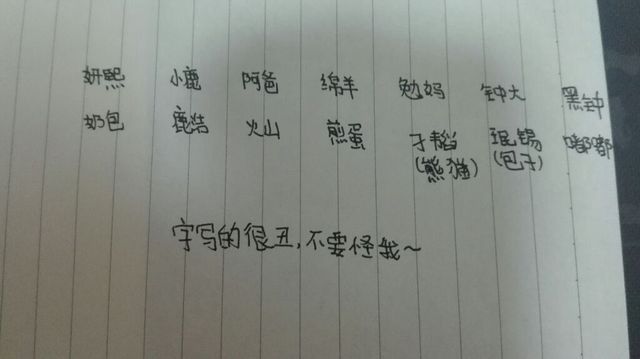 妍熙 小鹿 阿爸 绵羊 勉妈 钟大 黑钟
奶包 鹿浩 火山 煎蛋 子韬 珉锡 嘟嘟
(熊猫) (包子)
字写的很丑,不要怪我~